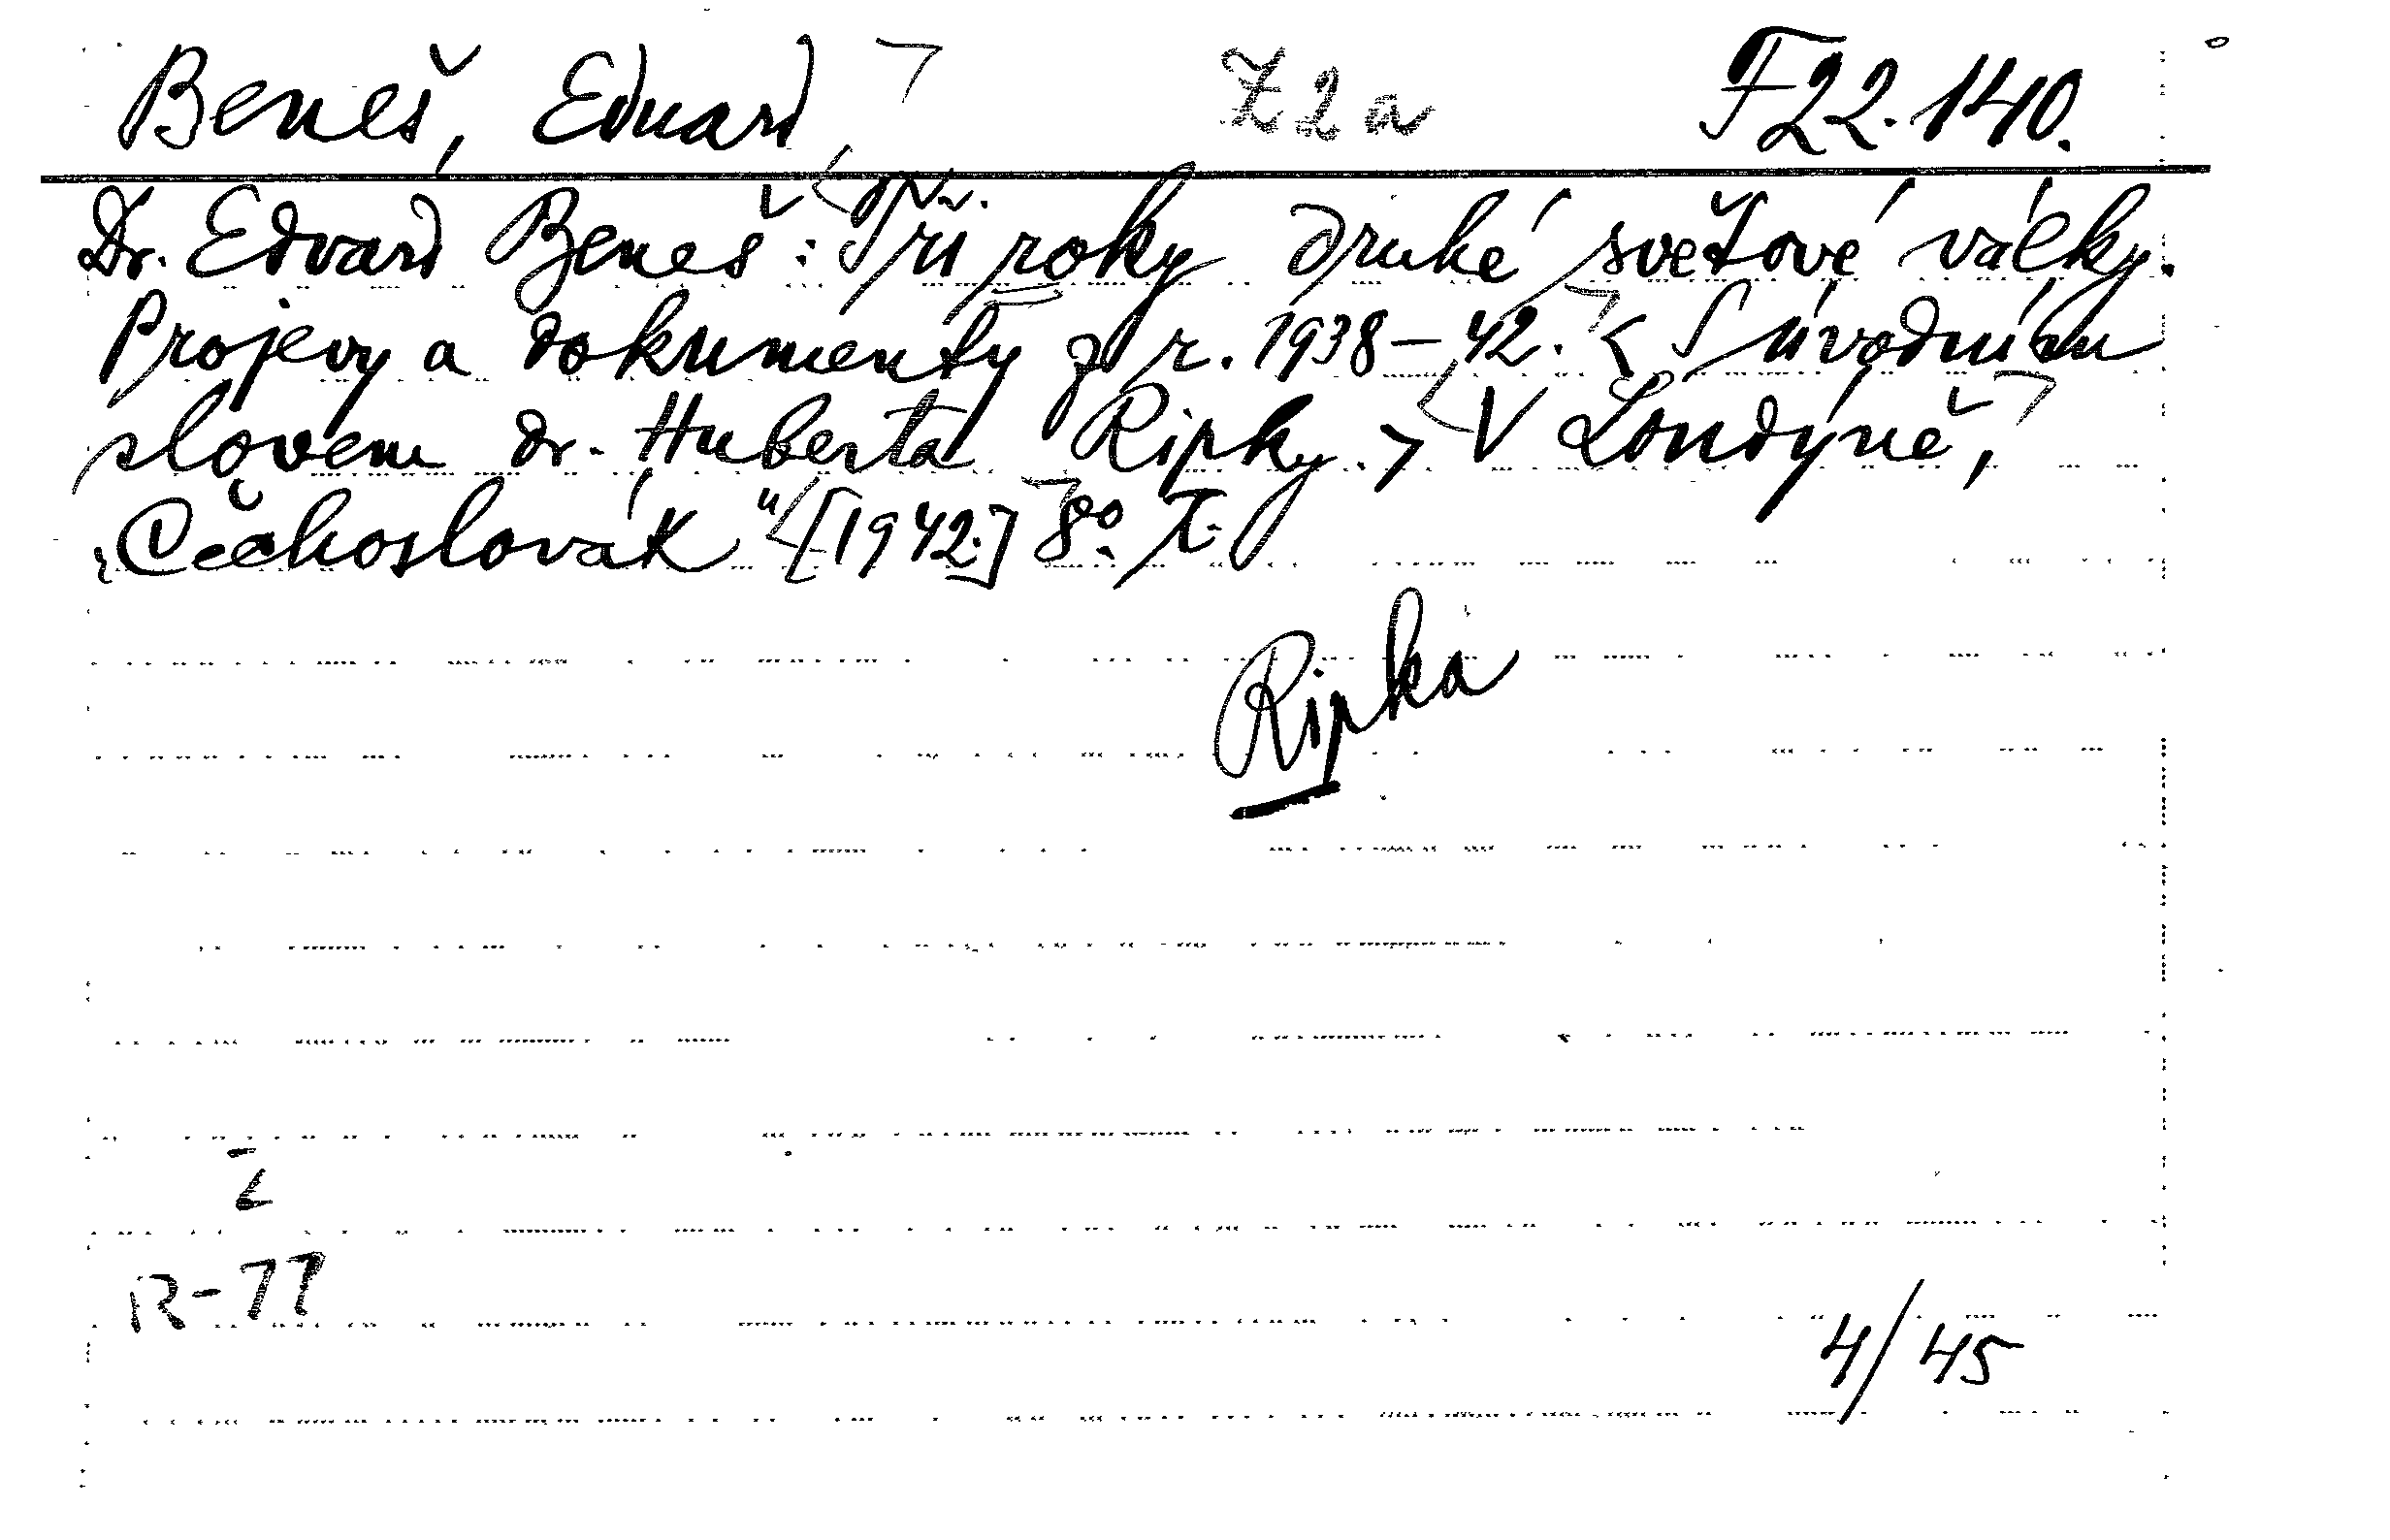 Beneš, Eduard Z2a F22.140.
Dr. Edvard Beneš: Tři roky druhé světové války.
Projevy a dokumenty z r. 1938–42. < S úvodním
slovem dr. Huberta Ripky. > V Londýně,
„Čechoslovák“ [1942.] 8°.
Ripka
R-77
4/45